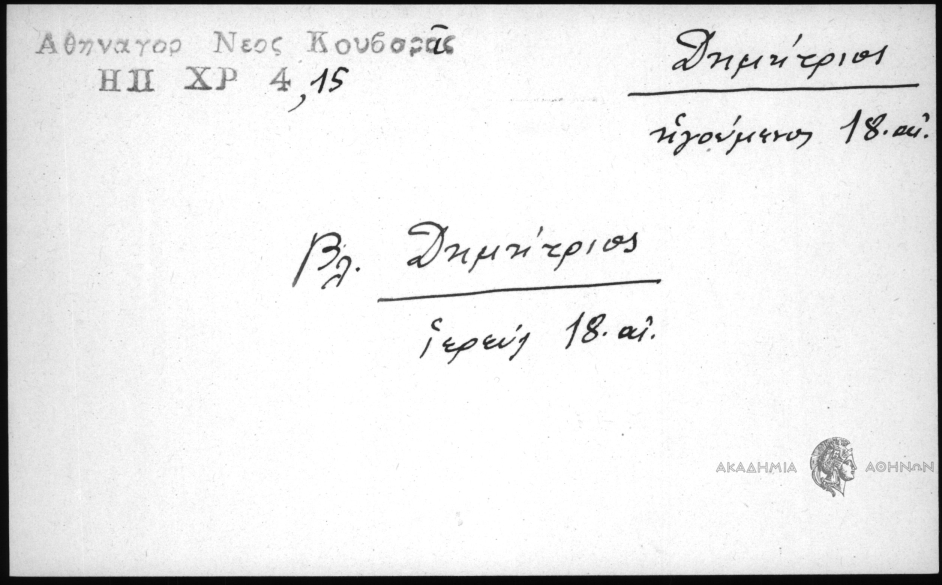 Αθηναγορ Νεος Κουβαρᾶς
ΗΠ ΧΡ 4,15
Δημήτριος
ἡγούμενος 18. αἰ.
Βλ. Δημήτριος
ἱερεύς 18. αἰ.
ΑΚΑΔΗΜΙΑ ΑΘΗΝΩΝ